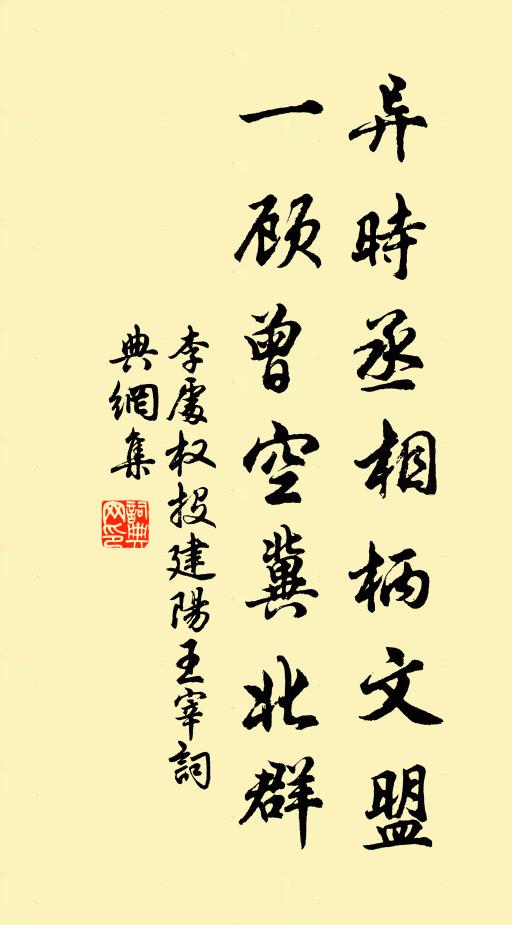 异時丞相柄文盟
一顾曾空冀北群
李處权投建陽王宰詞
典網集
詞典网印